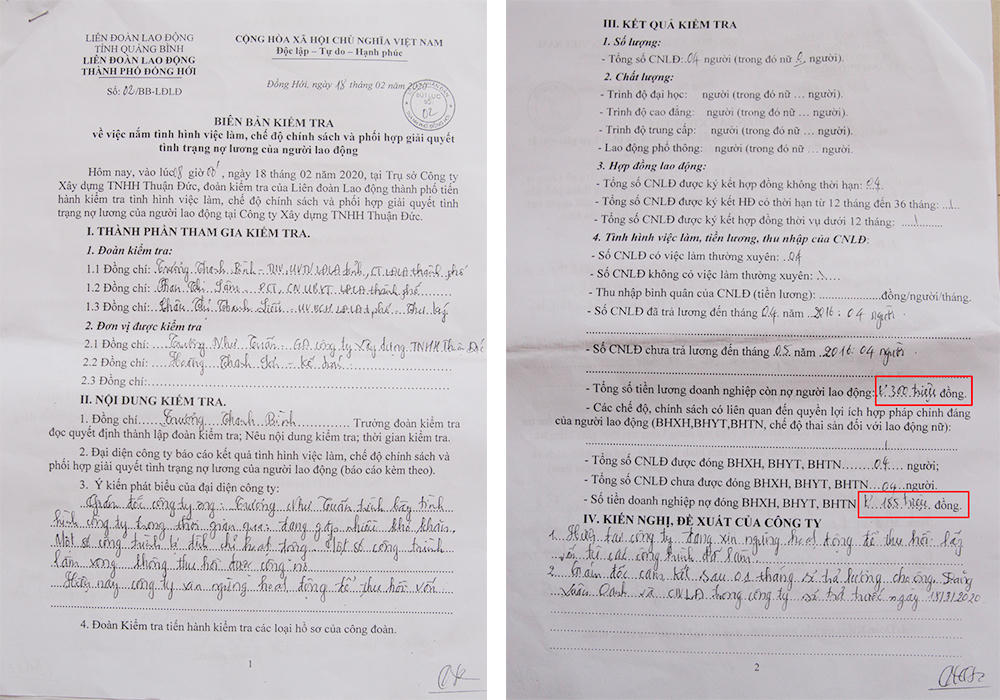 LIÊN ĐOÀN LAO ĐỘNG
TỈNH QUẢNG BÌNH
LIÊN ĐOÀN LAO ĐỘNG
THÀNH PHỐ ĐỒNG HỚI
Số: 02/BB-LĐLĐ
CỘNG HÒA XÃ HỘI CHỦ NGHĨA VIỆT NAM
Độc lập – Tự do – Hạnh phúc
Đồng Hới, ngày 18 tháng 02 năm 2020
BÚT LỤC
SỐ
02
BIÊN BẢN KIỂM TRA
về việc nắm tình hình việc làm, chế độ chính sách và phối hợp giải quyết
tình trạng nợ lương của người lao động
Hôm nay, vào lúc 08 giờ 00', ngày 18 tháng 02 năm 2020, tại Trụ sở Công ty
Xây dựng TNHH Thuận Đức, đoàn kiểm tra của Liên đoàn Lao động thành phố tiến
hành kiểm tra tình hình việc làm, chế độ chính sách và phối hợp giải quyết tình
trạng nợ lương của người lao động tại Công ty Xây dựng TNHH Thuận Đức.
I. THÀNH PHẦN THAM GIA KIỂM TRA.
1. Đoàn kiểm tra:
1.1 Đồng chí: Trương Thanh Bình - LĐLĐ tỉnh, CT LĐLĐ thành phố
1.2 Đồng chí: Phan Thị PCT, CN UBKT LĐLĐ thành phố
1.3 Đồng chí: Thị Thanh UVBCH LĐLĐ t.phố - Thư ký
2. Đơn vị được kiểm tra
2.1 Đồng chí: Trương Như Tuấn - GĐ công ty xây dựng TNHH Thuận Đức
2.2 Đồng chí: Hoàng Thanh - Kế toán
2.3 Đồng chí:
II. NỘI DUNG KIỂM TRA.
1. Đồng chí Trương Thanh Bình Trưởng đoàn kiểm tra
đọc quyết định thành lập đoàn kiểm tra; Nêu nội dung kiểm tra; thời gian kiểm tra.
2. Đại diện công ty báo cáo kết quả tình hình việc làm, chế độ chính sách và
phối hợp giải quyết tình trạng nợ lương của người lao động (báo cáo kèm theo).
3. Ý kiến phát biểu của đại diện công ty:
Giám đốc công ty ông: Trương Như Tuấn trình bày tình
hình công ty trong thời gian qua đang gặp nhiều khó khăn,
Một số công trình bị đình chỉ hoạt động. Một số công trình
làm xong không thu hồi được công nợ.
Hiện nay công ty xin ngừng hoạt động để thu hồi vốn
4. Đoàn Kiểm tra tiến hành kiểm tra các loại hồ sơ của công đoàn.
1
III. KẾT QUẢ KIỂM TRA
1. Số lượng:
- Tổng số CNLĐ: 04 người (trong đó nữ người).
2. Chất lượng:
- Trình độ đại học: người (trong đó nữ … người).
- Trình độ cao đẳng: người (trong đó nữ … người).
- Trình độ trung cấp: người (trong đó nữ … người).
- Lao động phổ thông: người (trong đó nữ … người.
3. Hợp đồng lao động:
- Tổng số CNLĐ được ký kết hợp đồng không thời hạn: 04.
- Tổng số CNLĐ được ký kết HĐ có thời hạn từ 12 tháng đến 36 tháng: ..1..
- Tổng số CNLĐ được ký kết hợp đồng thời vụ dưới 12 tháng: ...1...
4. Tình hình việc làm, tiền lương, thu nhập của CNLĐ:
- Số CNLĐ có việc làm thường xuyên: ..04
- Số CNLĐ không có việc làm thường xuyên:
- Thu nhập bình quân của CNLĐ (tiền lương): ...............đồng/người/tháng.
- Số CNLĐ đã trả lương đến tháng 04. năm ..2016. 04 người
- Số CNLĐ chưa trả lương đến tháng 05. năm .2016. 04 người
- Tổng số tiền lương doanh nghiệp còn nợ người lao động: 300 triệu đồng.
- Các chế độ, chính sách có liên quan đến quyền lợi ích hợp pháp chính đáng
của người lao động (BHXH,BHYT,BHTN, chế độ thai sản đối với lao động nữ):
- Tổng số CNLĐ được đóng BHXH, BHYT, BHTN......04....người;
- Tổng số CNLĐ chưa được đóng BHXH, BHYT, BHTN....04.người.
- Số tiền doanh nghiệp nợ đóng BHXH, BHYT, BHTN 185 triệu đồng.
IV. KIẾN NGHỊ, ĐỀ XUẤT CỦA CÔNG TY
1. Hiện tại công ty đang xin ngừng hoạt động để thu hồi lấy
vốn từ các công trình đã làm.
2. Giám đốc cam kết sau 01 tháng sẽ trả lương cho ông
Oanh và CNLĐ trong công ty sẽ trả trước ngày 18/3/2020
2